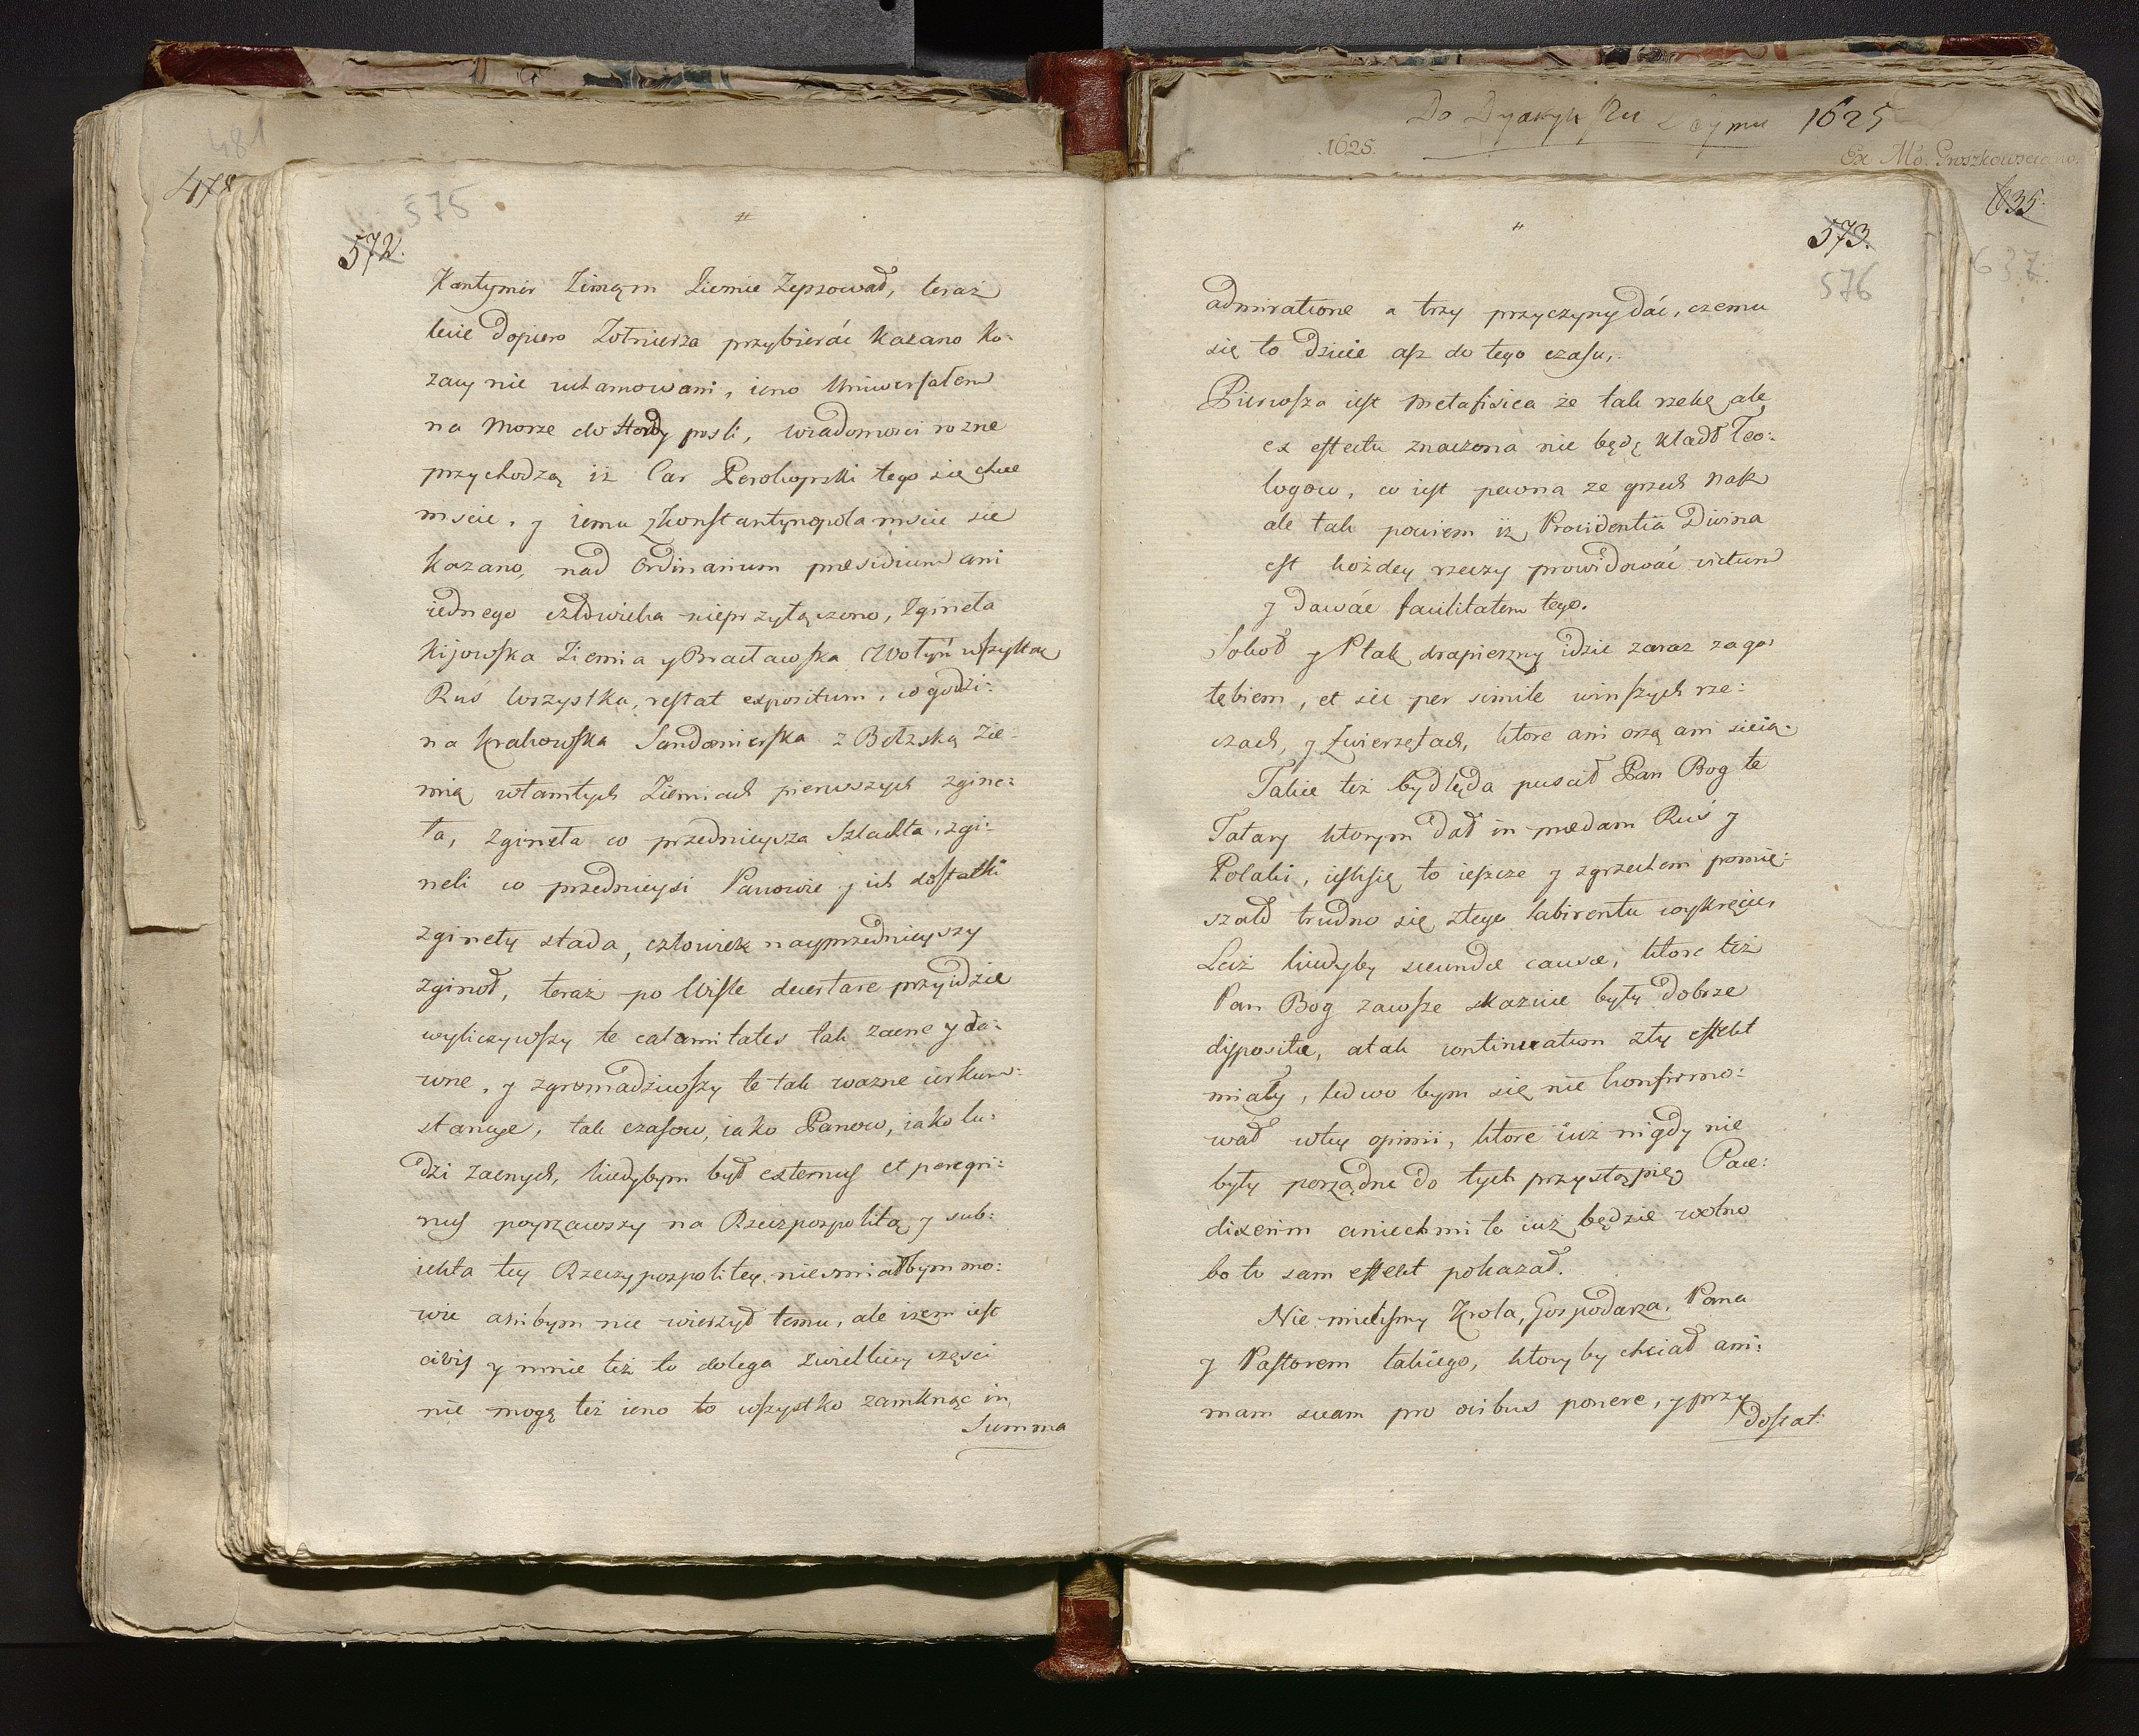 481
478
575
572.
Kantymir Zimąm Ziemie Zepsował, teraz
lecie dopiero Zołnierza przybieráć kazano Ko-
zacy nie uhamowani, ieno Uniwersałem
na Morze do Hordy posli, wiadomosci rozne
przychodzą iz Car Perekopski tego się chce
mscic, y iemu z Konstantynopola mscic sie
kazano, nad Ordinarium præsidium ani
iednego człowieka nieprzyłączono, Zgineła
Kijowska Ziemia y Bracławska Wołyń wszytek
Ruś wszystka, restat expositum, co godzi:
na Krakowska Sandomierska z Bełzską Zie-
mią wtamtych Ziemiach pierwszych zgine:
ła, zgineła co przednieysza Szlachta, zgi:
neli co przednieysi Panowie y ich dostatki
zginęły stada, człowiek nayprzednieyszy
zginoł, teraz po Wisle decertare przyidzie
wyliczywszy te calamitates tak zacne y da:
wne, y zgromadziwszy te tak wazne cirkum:
stancye, tak czasow, iako Panow, iako lu:
dzi zacnych, kiedybym był externus et peregri:
nus poyrzawszy na Rzeczpospolitą y sub:
iekta tey Rzeczypospolitey, niesmiałbym mo:
wic anibym nie wierzył temu, ale izem iest
civis y mnie też to dolega zwielkiey częsci
nie mogę też ieno to wszystko zamknąc in
Summa
Do Dyaryuszu Seymu 1625
1625.
Ex Ms. Groszkowsciano.
635.
637.
573.
576
admiratione a trzy przyczyny dać, czemu
się to dzieie asz do tego czasu,
Pierwsza iest metafisica że tak rzekę ale
ex effectu znaczona nie będę kładł Teo:
logow, co iest pewna ze grzech nasz
ale tak powiem iz Providentia Divina
est kożdey rzeczy prowidować victum
y dawáć facilitatem tego.
Sokoł y Ptak drapierzny idzie zaraz za go:
łębiem, et sic per simile winszych rze:
czach, y Zwierzętach, ktore ani orzą ani sieią.
Takie też bydlęda puscił Pan Bog te
Tatary ktorym dał in prædam Ruś y
Polaki, ieslisię to ieszcze y zgrzechem pomię:
szało trudno się ztego labirentu wykręcic,
Lecz kiedyby secundæ causæ, ktore też
Pan Bog zawsze skazuie były dobrze
dispositæ, atak continuatum zły effekt
miały, ledwo bym się nie konfirmo:
wał wtey opinii, ktore iuż nigdy nie
były porządne do tych przystąpię Pace:
dixerim aniechmi to iuż będzie wolno
bo to sam effekt pokazał.
Nie mielismy Krola, Gospodarza, Pana
y Pastorem takiego, ktoryby chciał ani:
mam suam pro ovibus ponere, y przy
dostat: